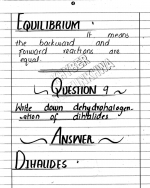 EQUILIBRIUM :
It means
the backward and
forward reactions are
equal.
QUESTION 9
Write down dehydrohalogen-
ation of dihalides
ANSWER
DIHALIDES :